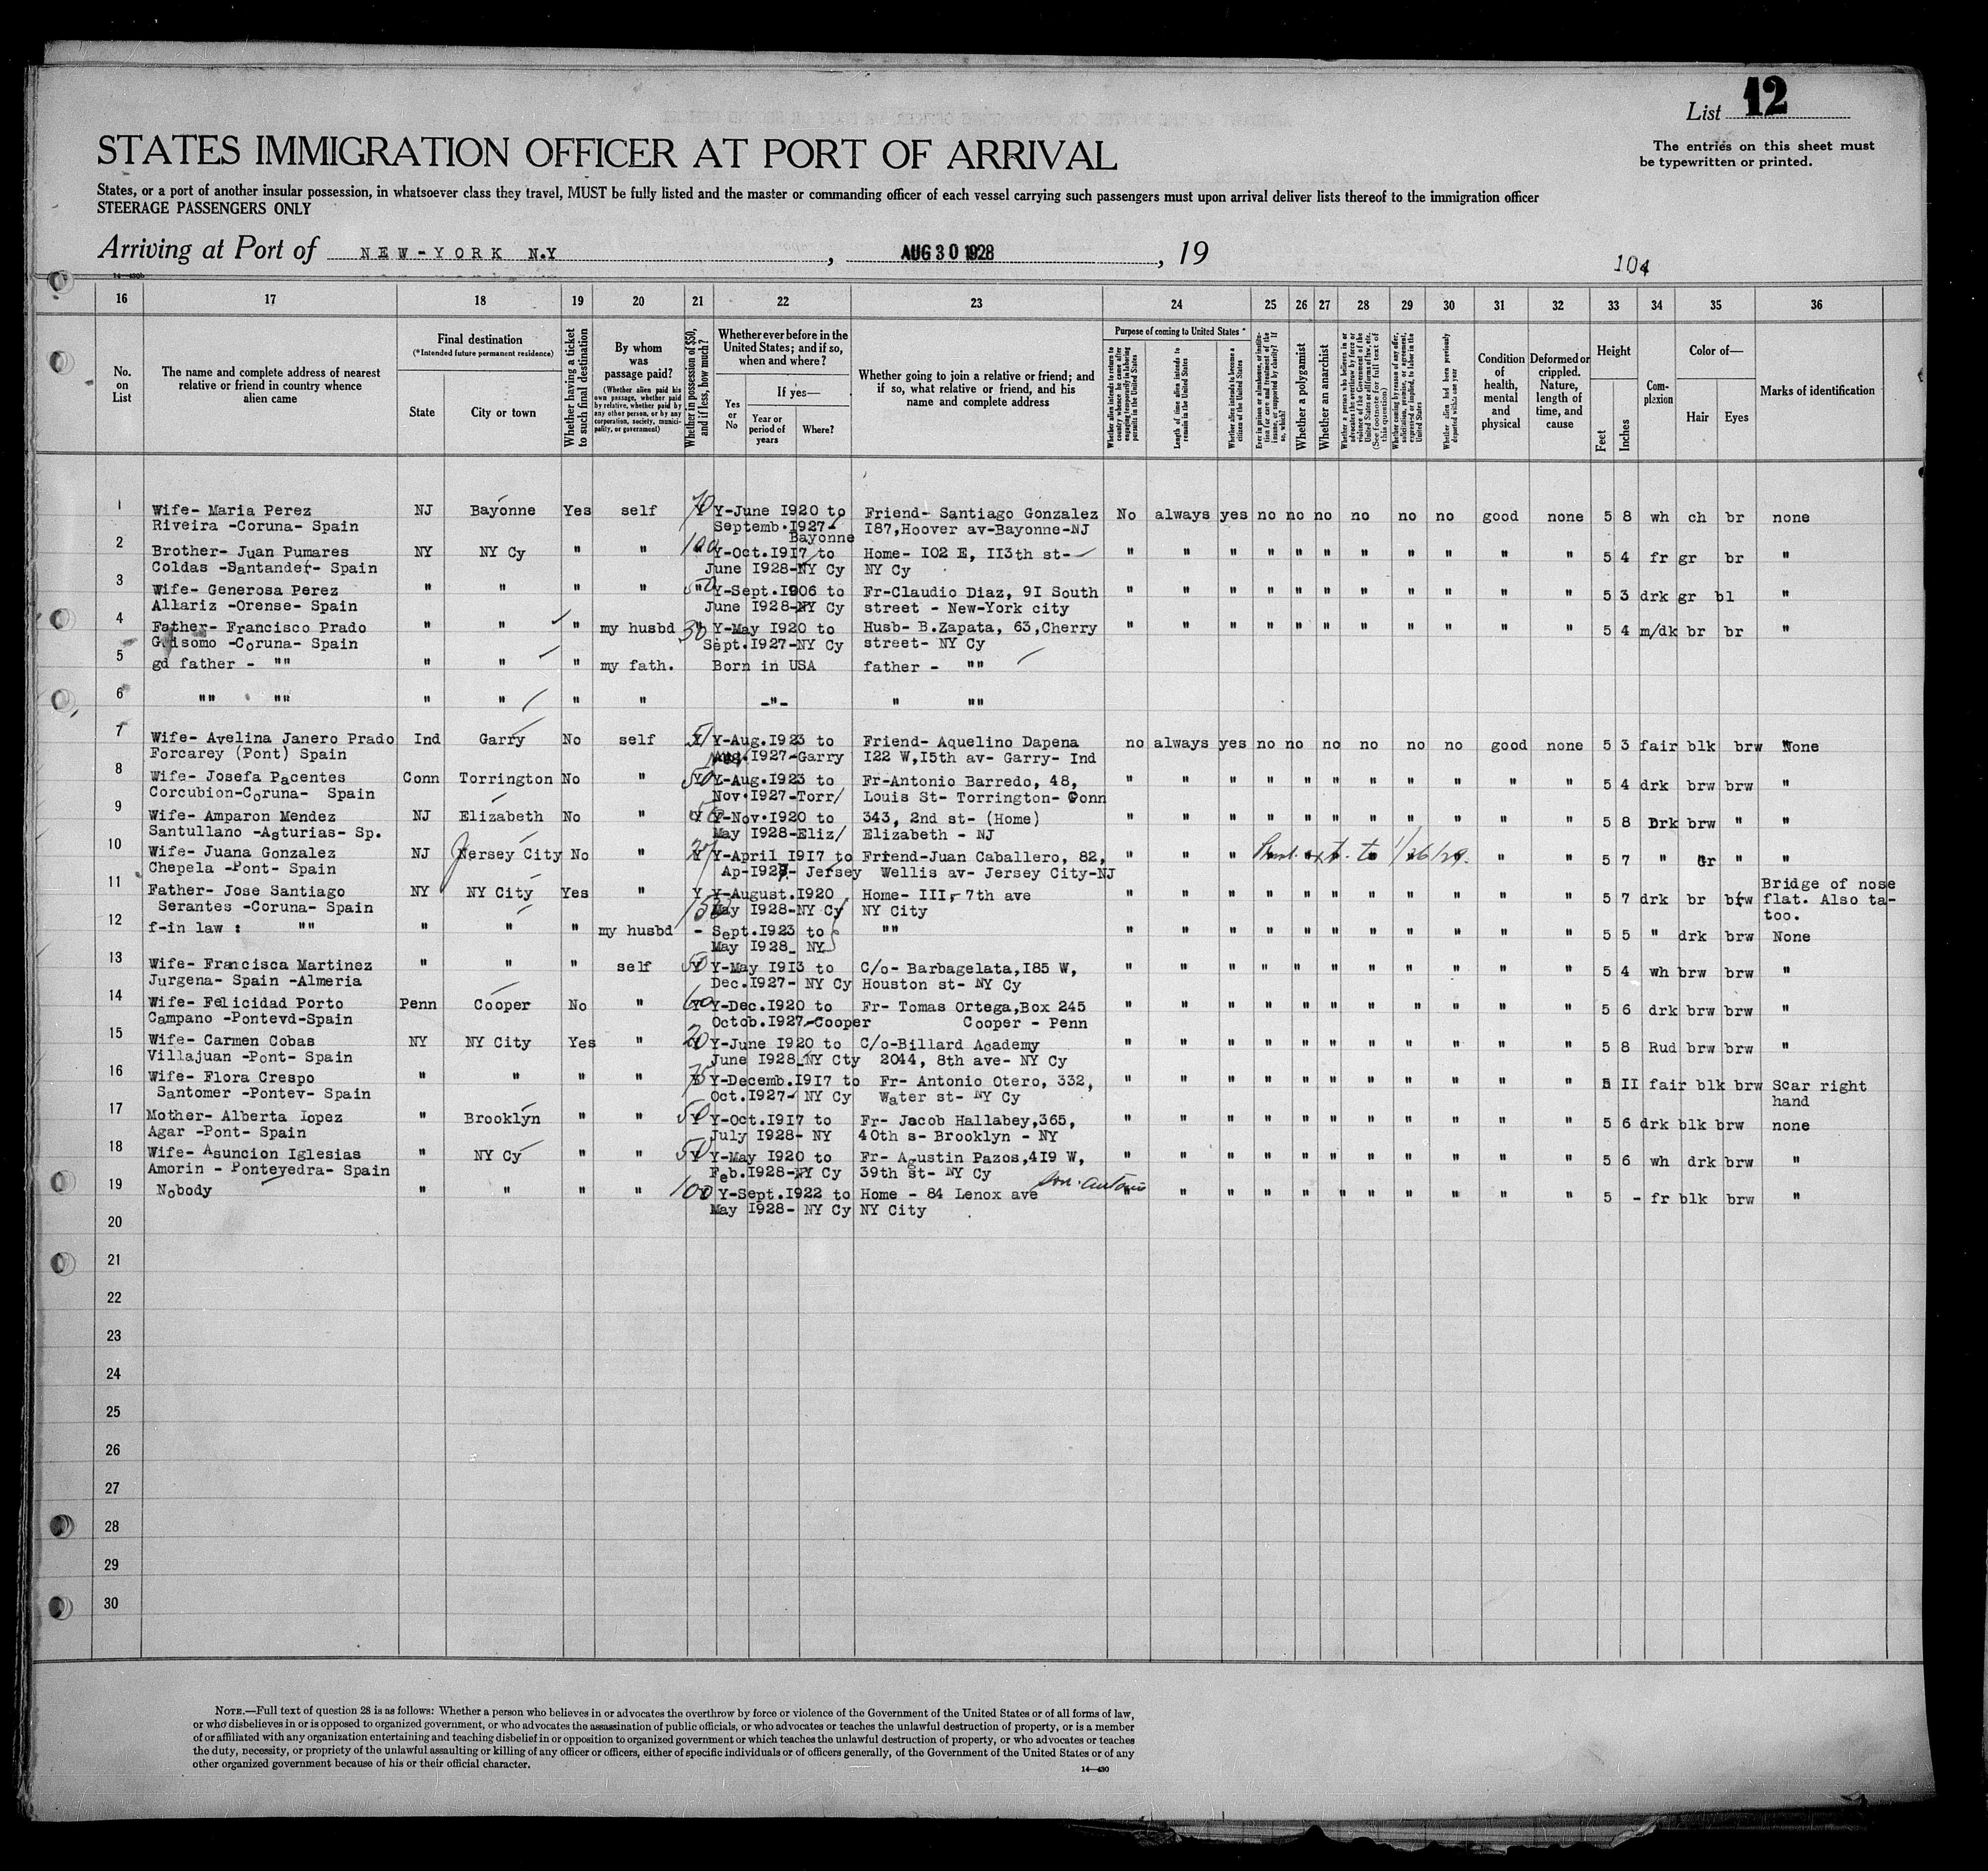 List 12
The entries on this sheet must
be typewritten or printed.
STATES IMMIGRATION OFFICER AT PORT OF ARRIVAL
States, or a port of another insular possession, in whatsoever class they travel, MUST be fully listed and the master or commanding officer of each vessel carrying such passengers must upon arrival deliver lists thereof to the immigration officer
STEERAGE PASSENGERS ONLY
Arriving at Port of NEW-YORK N.Y , AUG 30 1928 , 19
104
16 17 18 19 20 21 22 23 24 25 26 27 28 29 30 31 32 33 34 35 36
No. on List
The name and complete address of nearest relative or friend in country whence alien came
Final destination
(*Intended future permanent residence)
State
City or town
Whether having a ticket to such final destination
By whom was passage paid?
(Whether alien paid his own passage, whether paid by relative, whether paid by any other person, or by any corporation, society, municipality, or government)
Whether in possession of $50, and if less, how much?
Whether ever before in the United States; and if so, when and where?
Yes or No
If yes—
Year or period of years
Where?
Whether going to join a relative or friend; and if so, what relative or friend, and his name and complete address
Purpose of coming to United States *
Whether alien intends to return to country whence he came after engaging temporarily in laboring pursuits in the United States
Length of time alien intends to remain in the United States
Whether alien intends to become a citizen of the United States
Ever in prison or almshouse, or institution for care and treatment of the insane, or supported by charity? If so, which?
Whether a polygamist
Whether an anarchist
Whether a person who believes in or advocates the overthrow by force or violence of the Government of the United States or all forms of law, etc. (See footnote for full text of this question)
Whether coming by reason of any offer, solicitation, promise, or agreement, expressed or implied, to labor in the United States
Whether alien had been previously deported within one year
Condition of health, mental and physical
Deformed or crippled. Nature, length of time, and cause
Height
Feet
Inches
Complexion
Color of—
Hair
Eyes
Marks of identification
1 Wife- Maria Perez NJ Bayonne Yes self 70 Y-June I920 to Friend- Santiago Gonzalez No always yes no no no no no no good none 5 8 wh ch br none
Riveira -Coruna- Spain Septemb.I927- Bayonne I87,Hoover av-Bayonne-NJ
2 Brother- Juan Pumares NY NY Cy " " 100 Y-Oct.I917 to Home- IO2 E, II3th st- " " " " " " " " " " " 5 4 fr gr br "
Coldas -Santander- Spain June I928-NY Cy NY Cy
3 Wife- Generosa Perez " " " " 50 Y-Sept.I906 to Fr-Claudio Diaz, 9I South " " " " " " " " " " " 5 3 drk gr bl "
Allariz -Orense- Spain June I928-NY Cy street - New-York city
4 Father- Francisco Prado " " " my husbd 30 Y-May I920 to Husb- B.Zapata, 63,Cherry " " " " " " " " " " " 5 4 m/dk br br "
Goisomo -Coruna- Spain Sept.I927-NY Cy street- NY Cy
5 gd father - "" " " " my fath. Born in USA father - ""
6 "" "" " " " " -"- " ""
7 Wife- Avelina Janero Prado Ind Garry No self Y-Aug.I923 to Friend- Aquelino Dapena no always yes no no no no no no good none 5 3 fair blk brw None
Forcarey (Pont) Spain I927-Garry I22 W,I5th av- Garry- Ind
8 Wife- Josefa Pacentes Conn Torrington No " 50 Y-Aug.I923 to Fr-Antonio Barredo, 48, " " " " " " " " " " " 5 4 drk brw brw "
Corcubion-Coruna- Spain Nov.I927-Torr/ Louis St- Torrington- Conn
9 Wife- Amparon Mendez NJ Elizabeth No " Y-Nov.I920 to 343, 2nd st- (Home) " " " " " " " " " " " 5 8 Drk brw " "
Santullano -Asturias- Sp. May I928-Eliz/ Elizabeth - NJ
10 Wife- Juana Gonzalez NJ Jersey City No " Y-April I917 to Friend-Juan Caballero, 82, " " " ext. to 1/26/29. " " 5 7 " Gr " "
Chepela -Pont- Spain Ap-I927- Jersey Wellis av- Jersey City-NJ
11 Father- Jose Santiago NY NY City Yes " Y Y-August.I920 Home- III,- 7th ave " " " " " " " " " " " 5 7 drk br brw Bridge of nose flat. Also ta-too.
Serantes -Coruna- Spain 150 May I928-NY Cy NY City
12 f-in law : "" " " " my husbd - Sept.I923 to "" " " " " " " " " " " " 5 5 " drk brw None
May I928_ NY
13 Wife- Francisca Martinez " " " self 50 Y-May I913 to C/o- Barbagelata,I85 W, " " " " " " " " " " " 5 4 wh brw brw "
Jurgena- Spain -Almeria Dec.I927- NY Cy Houston st- NY Cy
14 Wife- Felicidad Porto Penn Cooper No " 60 Y-Dec.I920 to Fr- Tomas Ortega,Box 245 " " " " " " " " " " " 5 6 drk brw brw "
Campano -Pontevd-Spain Octob.I927-Cooper Cooper - Penn
15 Wife- Carmen Cobas NY NY City Yes " 20 Y-June I920 to C/o-Billard Academy " " " " " " " " " " " 5 8 Rud brw brw "
Villajuan -Pont- Spain June I928_NY Cty 2044, 8th ave- NY Cy
16 Wife- Flora Crespo " " " " 75 Y-Decemb.I917 to Fr- Antonio Otero, 332, " " " " " " " " " " " 5 II fair blk brw Scar right hand
Santomer -Pontev- Spain Oct.I927- NY Cy Water st- NY Cy
17 Mother- Alberta lopez " Brooklyn " " 50 Y-Oct.I917 to Fr- Jacob Hallabey,365, " " " " " " " " " " " 5 6 drk blk brw none
Agar -Pont- Spain July I928- NY 40th s- Brooklyn - NY
18 Wife- Asuncion Iglesias " NY Cy " " 50 Y-May I920 to Fr- Agustin Pazos,4I9 W, " " " " " " " " " " " 5 6 wh drk brw "
Amorin - Ponteyedra- Spain Feb.I928-NY Cy 39th st- NY Cy
19 Nobody " " " " 100 Y-Sept.I922 to Home - 84 Lenox ave son. Antonio " " " " " " " " " " " 5 - fr blk brw "
May I928- NY Cy NY City
20
21
22
23
24
25
26
27
28
29
30
NOTE.—Full text of question 28 is as follows: Whether a person who believes in or advocates the overthrow by force or violence of the Government of the United States or of all forms of law,
or who disbelieves in or is opposed to organized government, or who advocates the assassination of public officials, or who advocates or teaches the unlawful destruction of property, or is a member
of or affiliated with any organization entertaining and teaching disbelief in or opposition to organized government or which teaches the unlawful destruction of property, or who advocates or teaches
the duty, necessity, or propriety of the unlawful assaulting or killing of any officer or officers, either of specific individuals or of officers generally, of the Government of the United States or of any
other organized government because of his or their official character.
14—430